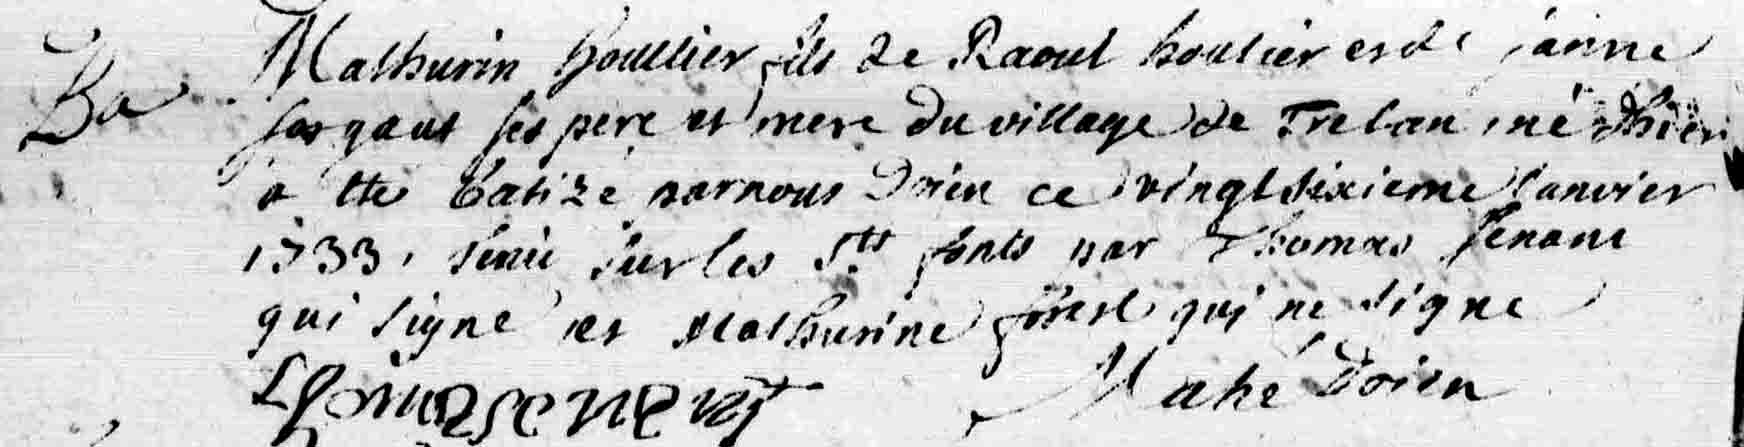 Ba
Mathurin houllier fils de Raoul houlier et de janne
ses pere et mere du village de Trelan né dhier
a ete batizé par nous Doien ce vingt sixieme janvier
1733, tenu sur les Sts fonts par Thomas
qui signe et Mathurine qui ne signe
Mahé Doien